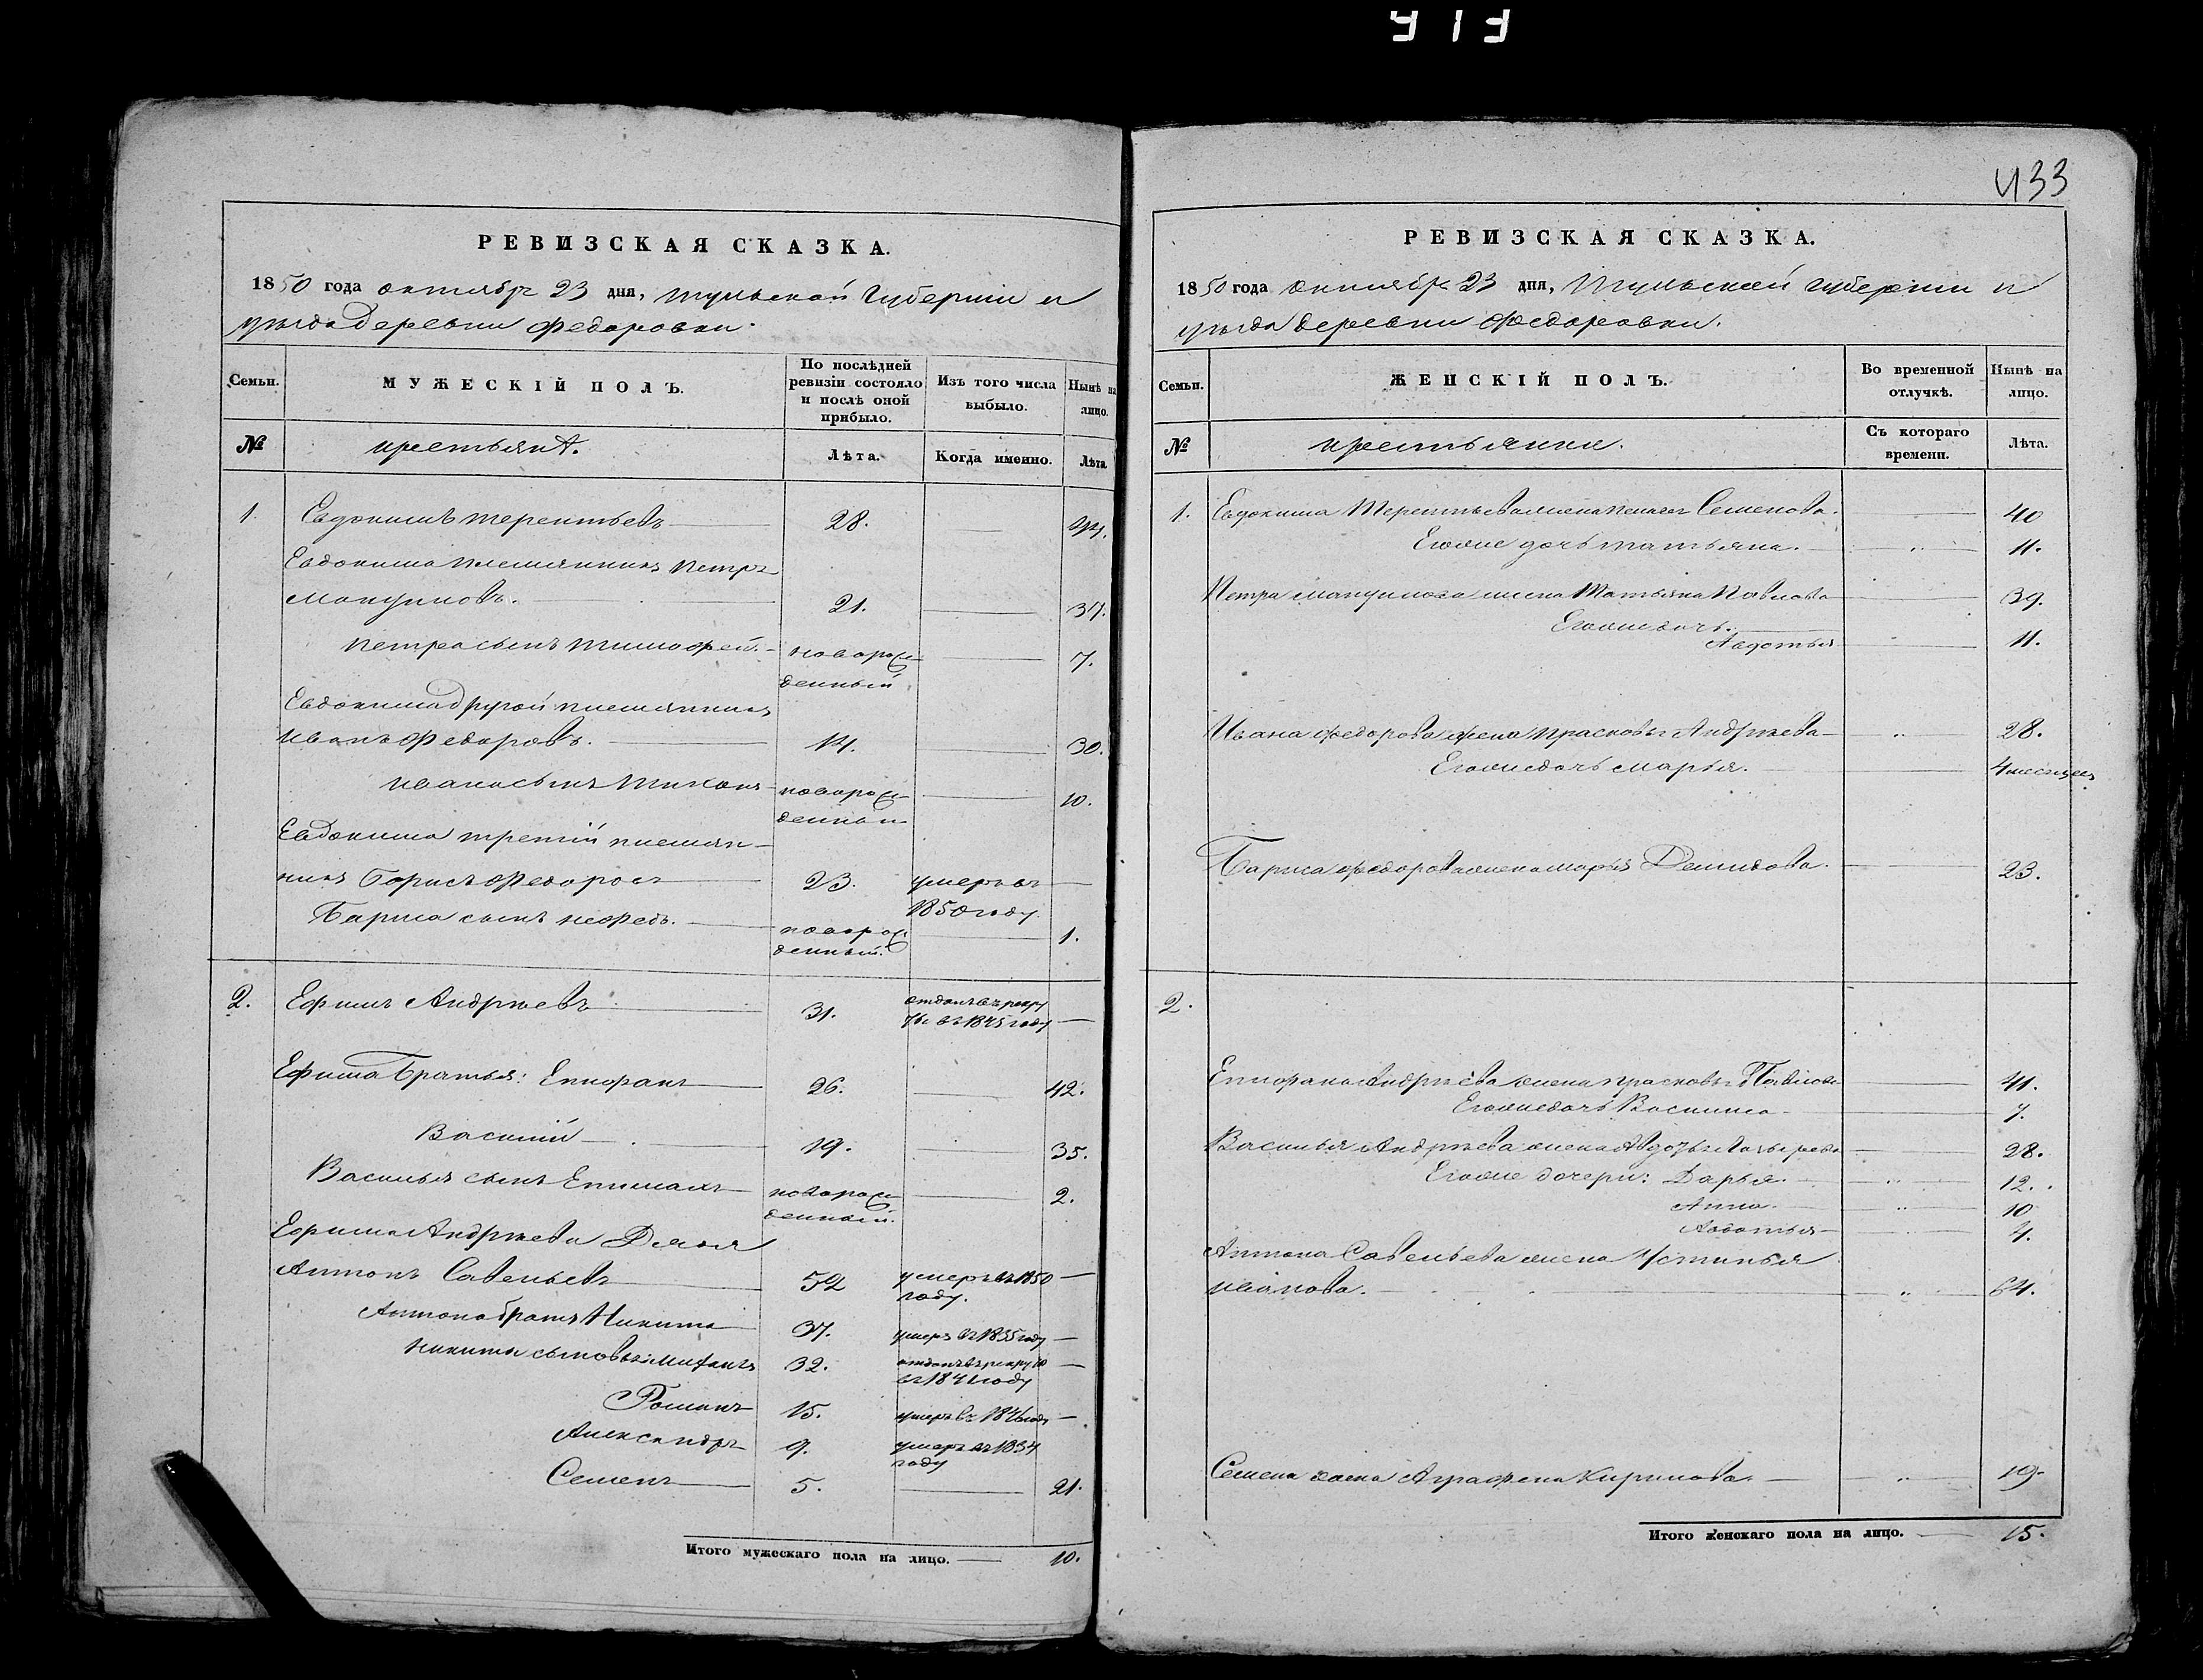 913
433
РЕВИЗСКАЯ СКАЗКА.
1850 года октября 23 дня, Тульской Губернии и
уезда деревни Федоровки.
Семьи.
МУЖЕСКІЙ ПОЛЪ.
По послѣдней
ревизіи состояло
и послѣ оной
прибыло.
Изъ того числа
выбыло.
Нынѣ на
лицо.
№
крестьяне.
Лѣта.
Когда именно.
Лѣта
1. Евдокимъ Терентьевъ 28. 44.
Евдокима племянникъ Петръ
21. 37.
Петра сынъ Тимофей. новорож- 7.
денный
Евдокима другой племянникъ
Иванъ Федоровъ. 14. 30.
Ивана сынъ Тихонъ новорож- 10.
денный
Евдокима третій племян-
никъ Борисъ Федоровъ 23. умеръ въ
1850 году.
Бориса сынъ Нефедъ. новорож- 1.
денный.
2. Ефимъ Андреевъ 31. отданъ въ рекру
ты въ 1845 году
Ефима братья: Епифанъ 26. 42.
Василій 19. 35.
Василья сынъ новорож- 2.
денный.
Ефима Андреева Дядя
Антонъ Савельевъ 52 умеръ въ 1850
году.
Антона братъ Никита 37. умеръ въ 1835 году
Никиты сыновья: 32. отданъ въ рекруты
въ 1841 году
Романъ 15. умеръ въ 1846 году
Александръ 9. умеръ въ 1834
году
Семенъ 5. 21.
Итого мужескаго пола на лицо. 10.
РЕВИЗСКАЯ СКАЗКА.
1850 года октября 23 дня, Тульской губернии и
уезда деревни Федоровки.
Семьи.
ЖЕНСКІЙ ПОЛЪ.
Во временной
отлучкѣ.
Нынѣ на
лицо.
№
крестьянки.
Съ котораго
времени.
Лѣта.
1. Евдокима Терентьева жена Семенова. 40
Его же дочь Татьяна. 11.
Петра жена Татьяна Павлова 39.
Его же дочь.
Авдотья 11.
Ивана Федорова жена Прасковья Андреева 28.
Его же дочь Марья. 4 месяцев
Бориса Федорова жена Марья Демидова. 23.
2.
Епифана Андреева жена Прасковья Павлова 41.
Его же дочь Василиса 7.
Василья Андреева жена Авдотья 28.
Его же дочери: Дарья. 12.
Анна. 10
Авдотья 4.
Антона Савельева жена Устинья
Иванова. 64.
Семена жена Аграфена Кирилова. 19.
Итого женскаго пола на лицо. 15.